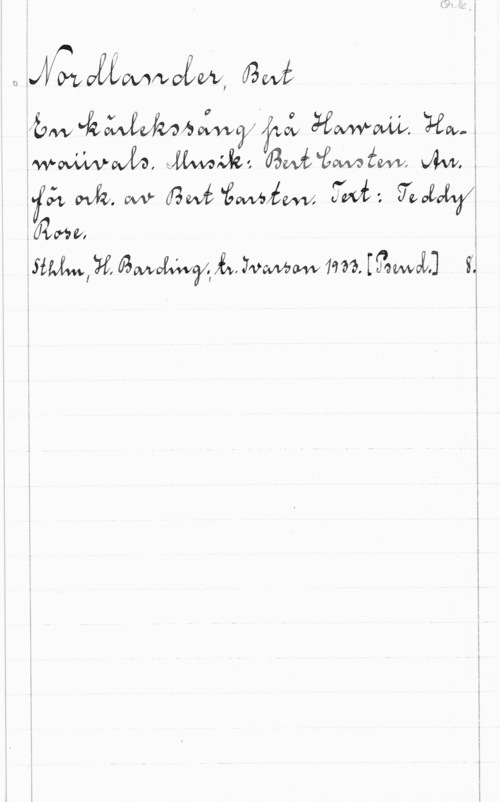 Ork.
Nordlander, Bert
En kärlekssång från Hawaii. Ha-
waiivals. Musik: Bert Carsten. Arr.
för ork. av Bert Carsten. Text: Teddy
Rose.
Sthlm, H. Barding, tr. Ivarson 1933. [Pseud.] 8.